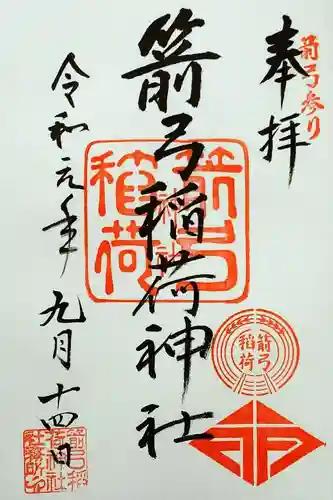 箭弓参り
奉拝
箭弓稲荷神社
箭弓稲荷
箭弓稲荷
令和元年九月十四日
箭弓稲荷神社社務所之印